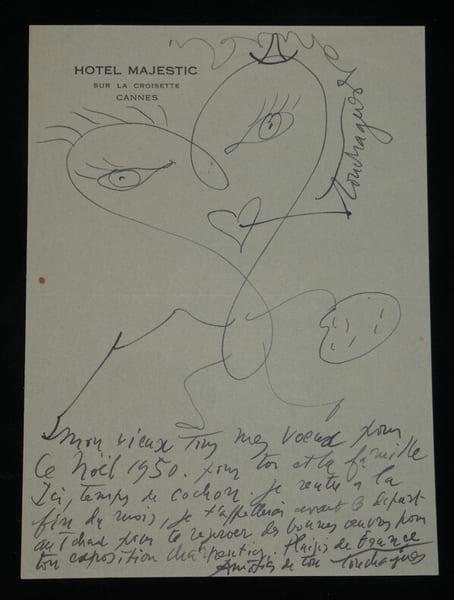 HOTEL MAJESTIC
SUR LA CROISETTE
CANNES
Touchagues
Mon vieux tous mes voeux pour
ce Noël 1950. pour toi et la famille
Ici, temps de cochon. je rentre à la
fin du mois, je t'appellerai avant le départ
au Tchad pour te réserver des bonnes œuvres pour
ton exposition charpentier. Plaisir de France
Amitiés de ton Touchagues